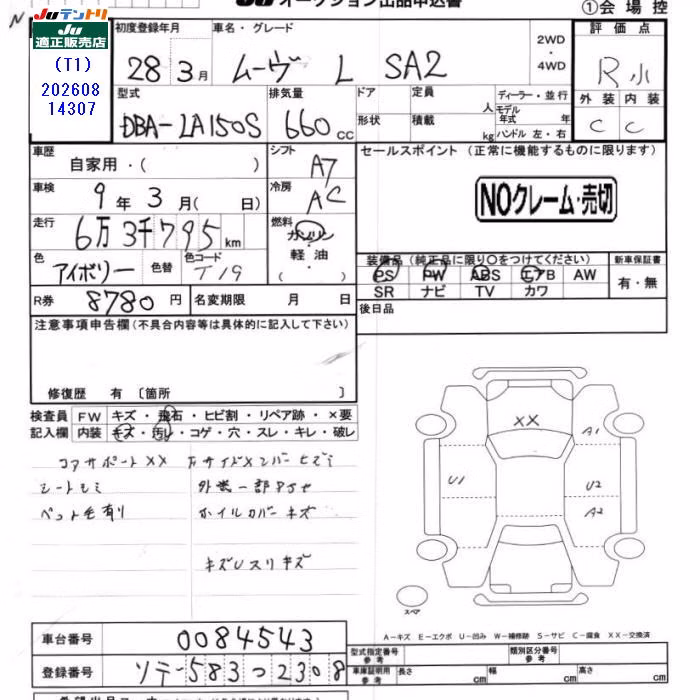 Juテントリ
Ju
適正販売店
(T1)
202608
14307
Ju オークション出品申込書
①会場控
初度登録年月
車名・グレード
28 3月
ムーヴ L SA2
2WD
・
4WD
評価点
R小
外装 内装
C C
型式
排気量
DBA-LA150S
660 CC
ドア
定員
人
形状
積載
kg
ディーラー・並行
モデル
年式 年
ハンドル 左・右
車歴
自家用・( )
シフト
A7
車検
9年 3月( 日)
冷房
AC
走行
6万 3千795 km
燃料
ガソリン
軽油
( )
色
アイボリー
色替
色コード
T19
R券
8780円
名変期限 月 日
セールスポイント (正常に機能するものに限ります)
NOクレーム・売切
装備品 (純正品に限り○をつけてください)
PS PW ABS エアB AW
SR ナビ TV カワ
新車保証書
有・無
後日品
注意事項申告欄(不具合内容等は具体的に記入して下さい)
修復歴 有 〔箇所 〕
検査員
記入欄
FW キズ・飛石・ヒビ割・リペア跡・×要
内装 キズ・汚れ・コゲ・穴・スレ・キレ・破レ
コアサポートXX
シートシミ
外装一部
ペット毛有り
ホイルカバーキズ
キズUスリキズ
XX
A1
U1
U2
A2
スペア
A-キズ E-エクボ U-凹み W-補修跡 S-サビ C-腐食 XX-交換済
車台番号
0084543
登録番号
ソテ-583つ2308
型式指定番号
参考
類別区分番号
参考
車庫証明用
参考
長さ cm
幅 cm
高さ cm